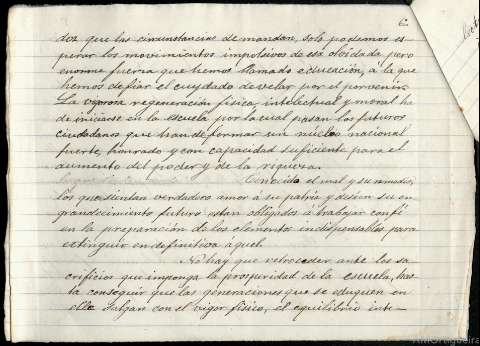 6.
dos que las circunstancias demandan, solo podemos es
perar los movimientos impulsivos de esa olvidada pero
enorme fuerza que hemos llamado educación, á la que
hemos de fiar el cuydado de velar por el porvenir.
La vigorosa regeneración física, intelectual y moral ha
de iniciarse en la escuela por la cual pasan los futuros
ciudadanos que han de formar un nucleo nacional
fuerte, honrado y con capacidad suficiente para el
aumento del poder y de la riqueza.
Conocido el mal y su remedio,
los que sientan verdadero amor á su patria y deseen su en
grandecimiento futuro estan obligados á trabajar con fé
en la preparación de los elementos indispensables para
extinguir en definitiva aquel.
No hay que retroceder ante los sa
crificios que imponga la prosperidad de la escuela, has
ta conseguir que las generaciones que se eduquen en
ella salgan con el vigor físico, el equilibrio inte-